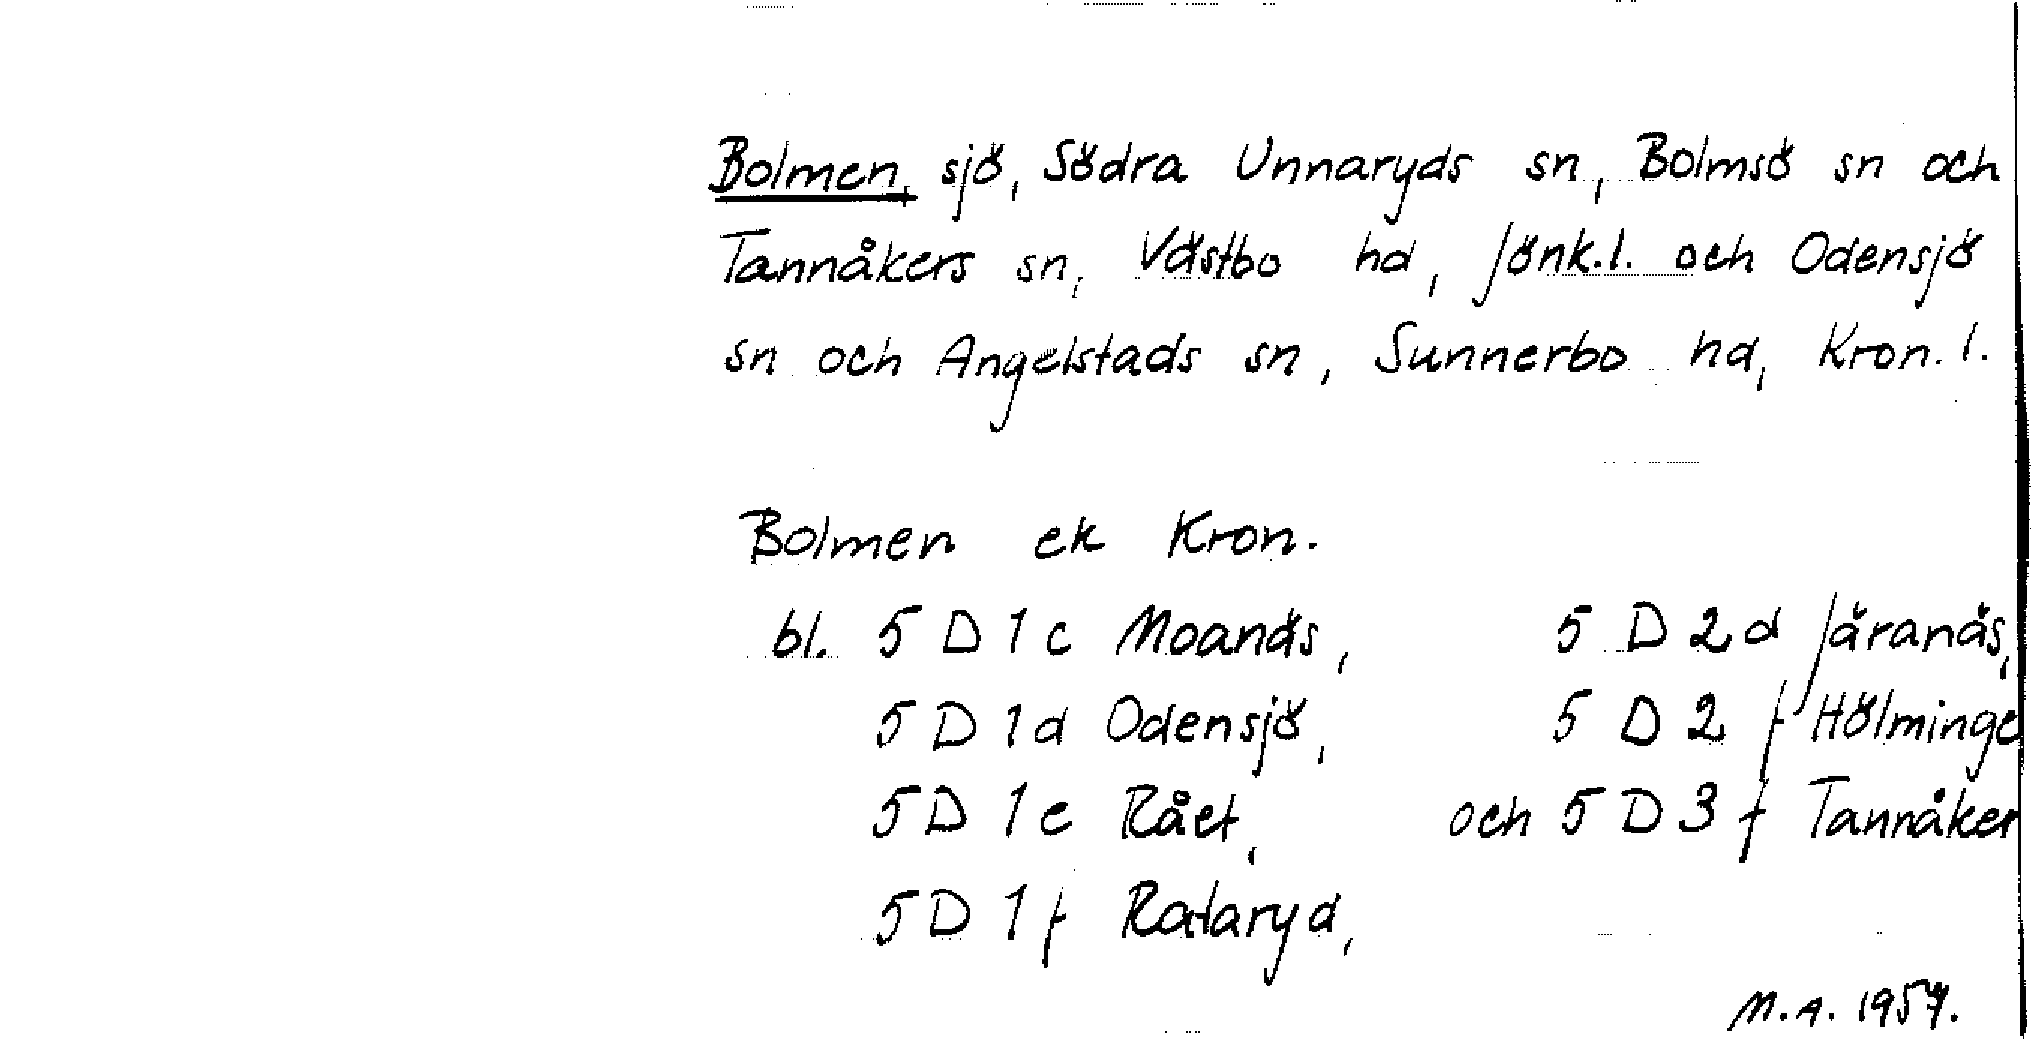 Bolmen, sjö, Södra Unnaryds sn, Bolmsö sn och
Tannåkers sn, Västbo hd, Jönk.l. och Odensjö
sn och Angelstads sn, Sunnerbo hd, Kron.l.
Bolmen ek Kron.
bl. 5 D 1 c Moanäs, 5 D 2 d Järanäs,
5 D 1 d Odensjö, 5 D 2 f Hölminge
5 D 1 e Rået, och 5 D 3 f Tannåker
5 D 1 f Rataryd,
M.A. 1957.